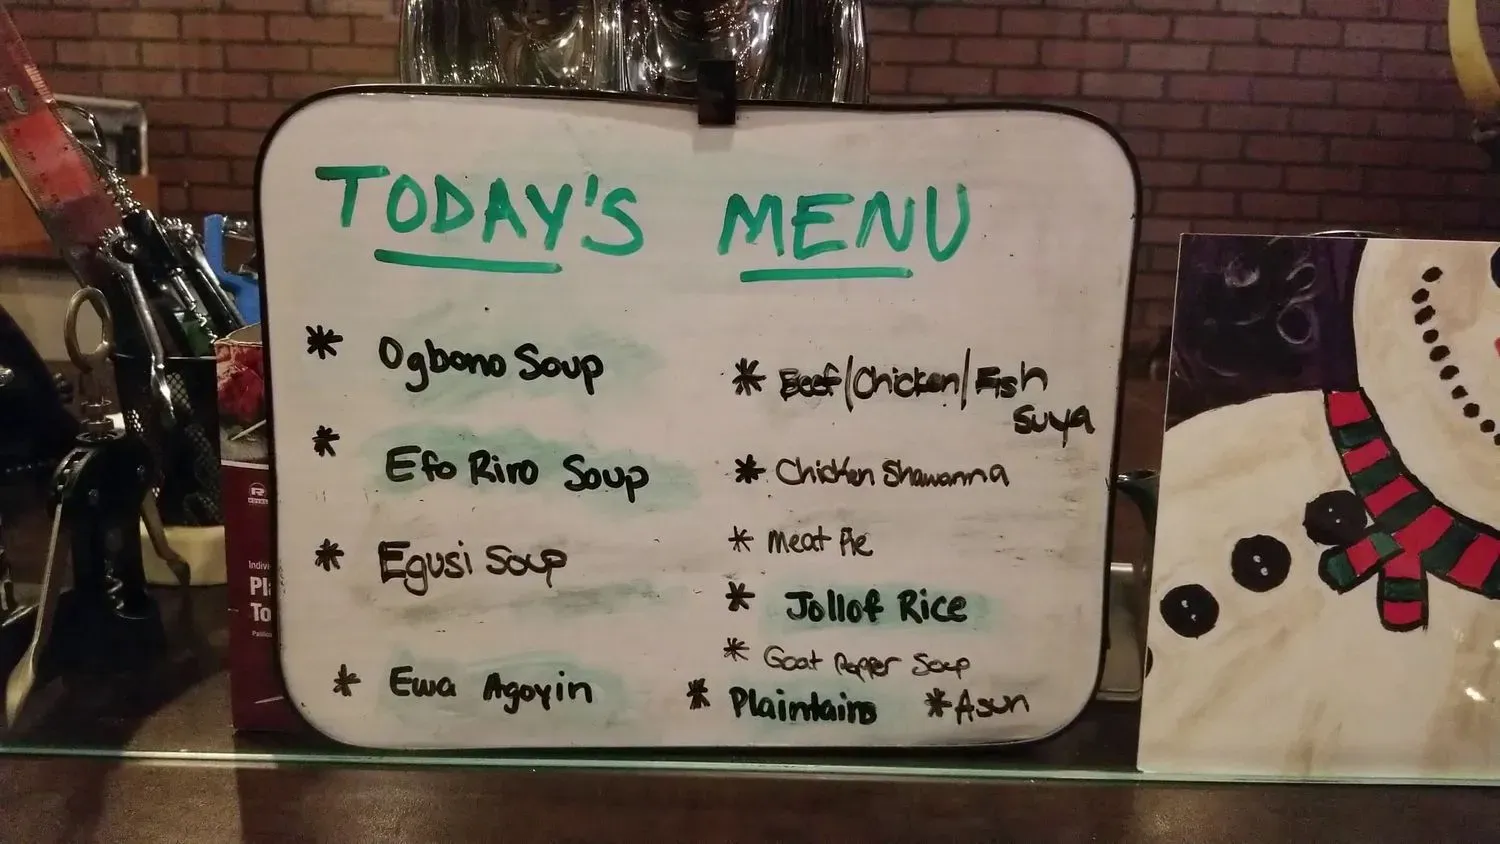 TODAY'S MENU
* Ogbono Soup
* Efo Riro Soup
* Egusi Soup
* Ewa Agoyin
* Beef/Chicken/Fish
Suya
* Chicken Shawarma
* Meat Pie
* Jollof Rice
* Goat Pepper Soup
* Plaintains
* Asun